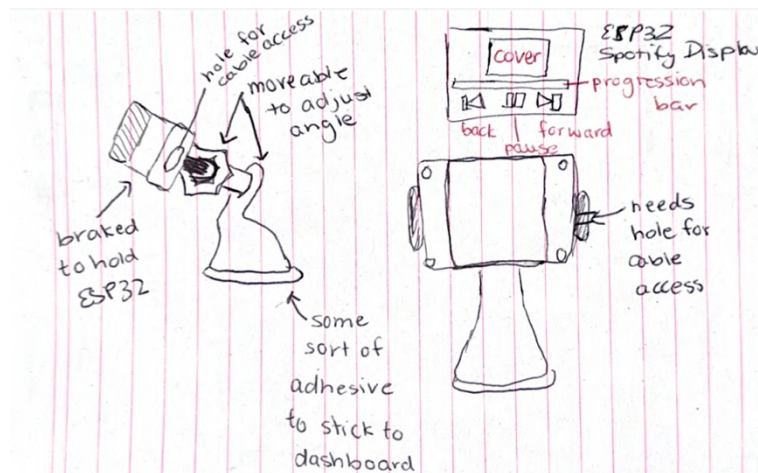 hole for
cable access
moveable
to adjust
angle
braked
to hold
ESP32
some
sort of
adhesive
to stick to
dashboard
ESP32
Spotify Display
cover
progression
bar
back
forward
pause
needs
hole for
cable
access